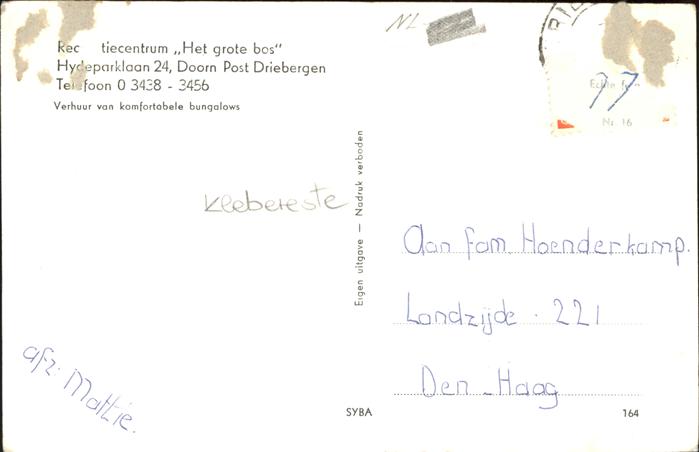 NL-
Rec tiecentrum „Het grote bos"
Hydeparklaan 24, Doorn Post Driebergen
Telefoon 0 3438 - 3456
Verhuur van komfortabele bungalows
77
Nr. 16
Klebereste
Eigen uitgave — Nadruk verboden
Aan fam. Hoenderkamp.
Landzijde . 221
Den - Haag
afz. Mattie.
SYBA
164